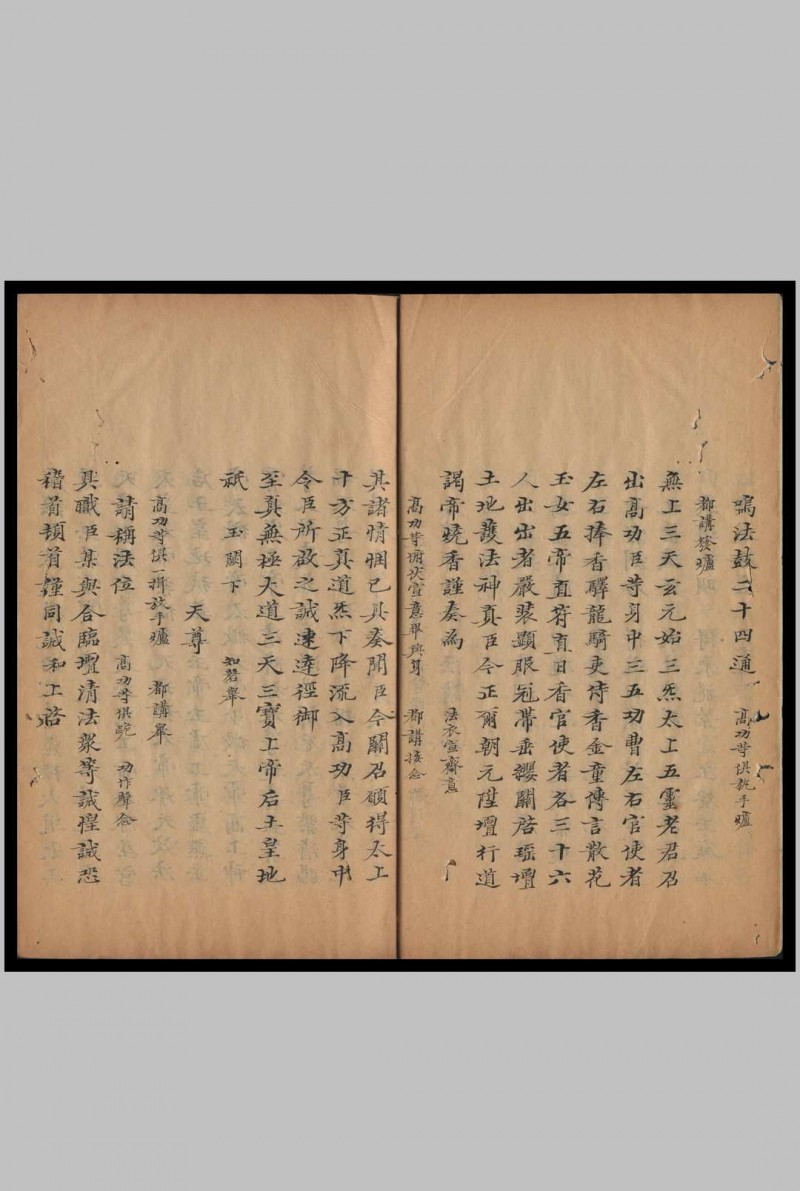 鳴法鼓二十四通 高功等俱執手爐
都講發爐
無上三天玄元始三炁太上五靈老君召
出高功臣等身中三五功曹左右官使者
左右捧香驛龍騎吏侍香金童傳言散花
玉女五帝直符直日香官使者各三十六
人出出者嚴裝顯服冠帶垂纓關啓瑶壇
土地護法神真臣今正爾朝元陞壇行道
謁帝燒香謹奏為 法衣宣齋意
高功等俯伏宣意畢興身 都講接念
其諸情悃已具奏聞臣今關召願得太上
十方正真道炁下降流入高功臣等身中
令臣所啟之誠速達徑御
至真無極大道三天三寳上帝后土皇地
祇 玉闕下 知磬舉
天尊
高功等俱一揖放手爐 都講舉
請稱法位 高功等俱跪 功作聲念
具職臣某與合臨壇清法衆等誠惶誠恐
稽首頓首謹同誠和上啓